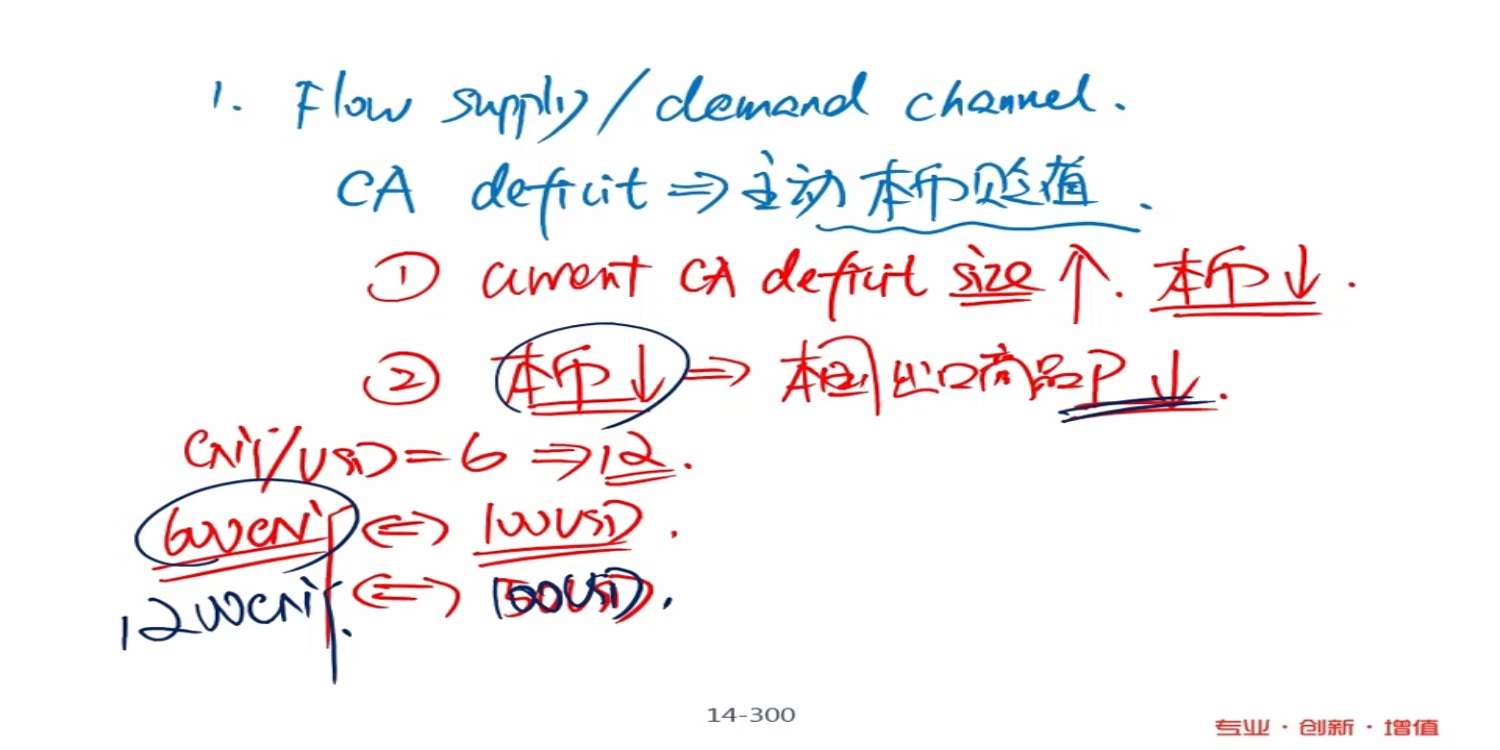 1. Flow supply/demand channel.
CA deficit ⇒ 主动本币贬值.
① current CA deficit size ↑. 本币↓.
② 本币↓ ⇒ 本国出口商品P↓.
CNY/USD = 6 ⇒ 12.
600CNY ⇔ 100USD.
1200CNY. ⇔ 100USD.
14-300
专业·创新·增值